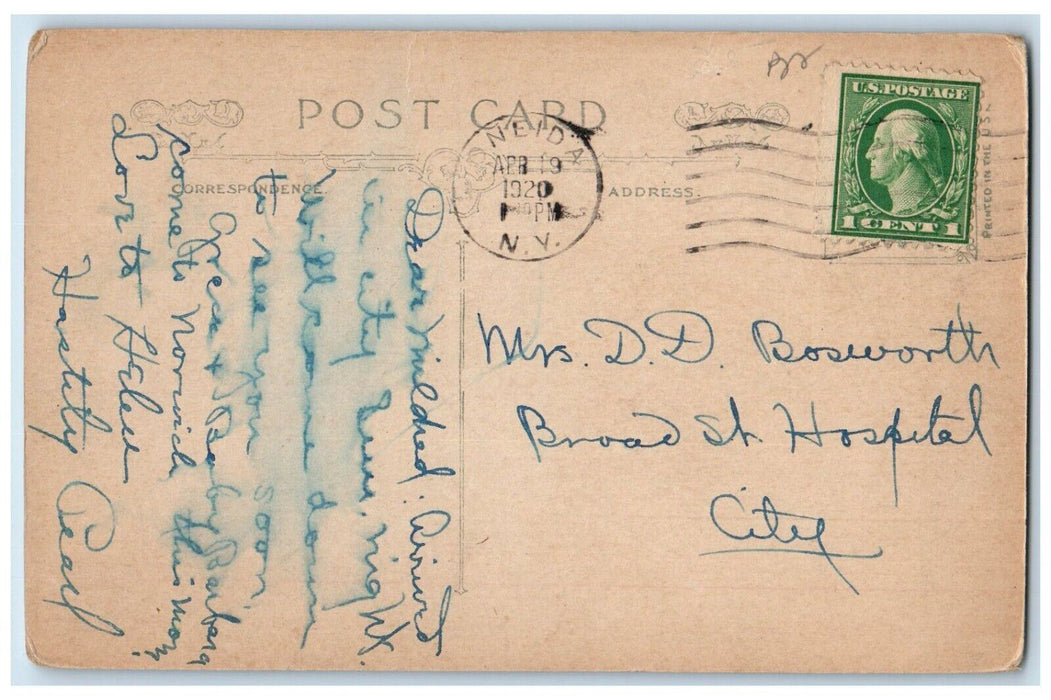 POST CARD
CORRESPONDENCE.
ADDRESS.
ONEIDA
APR 19
1920
PM
N.Y.
U.S. POSTAGE
1 CENT 1
PRINTED IN THE U.S.A.
Mrs. D. D. Bosworth
Broad St. Hospital
City
Dear Mildred: Arrived
in city Sun. night.
Will come down
to see you soon
& Baby Barbara
come to Norwich this morn.
Love to Helen
Hastily Pearl